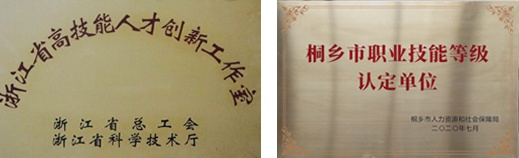 浙江省高技能人才创新工作室
浙江省总工会
浙江省科学技术厅
桐乡市职业技能等级
认定单位
桐乡市人力资源和社会保障局
二〇二〇年七月